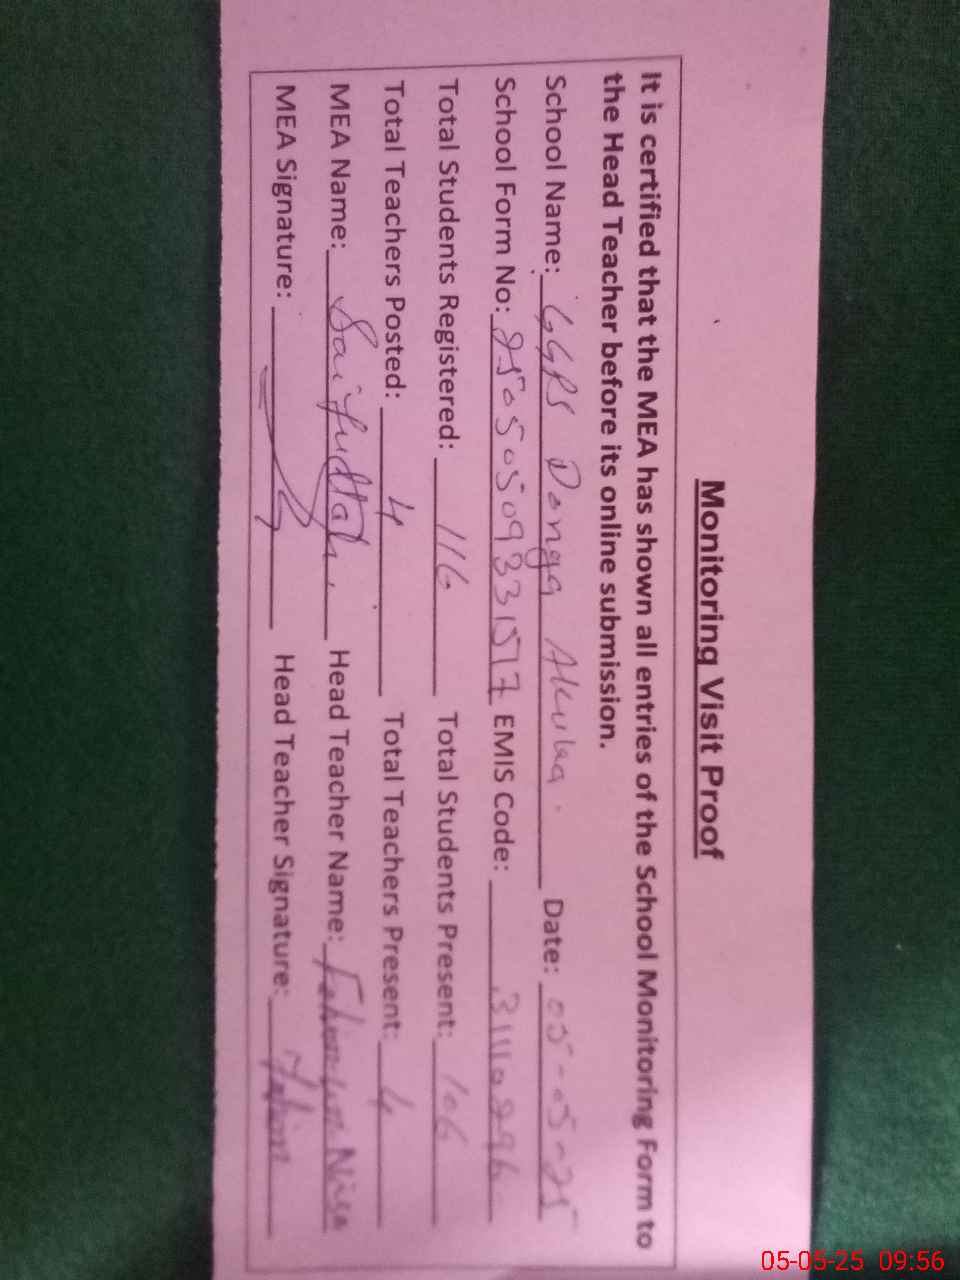 Monitoring Visit Proof
It is certified that the MEA has shown all entries of the School Monitoring Form to
the Head Teacher before its online submission.
School Name: GGPS Donga Akulea. Date: 05-05-25
School Form No: EMIS Code:
Total Students Registered: 116 Total Students Present: 106
Total Teachers Posted: 4 Total Teachers Present: 4
MEA Name: Saifullah Head Teacher Name: Nisa
MEA Signature: Head Teacher Signature:
05-05-25 09:56